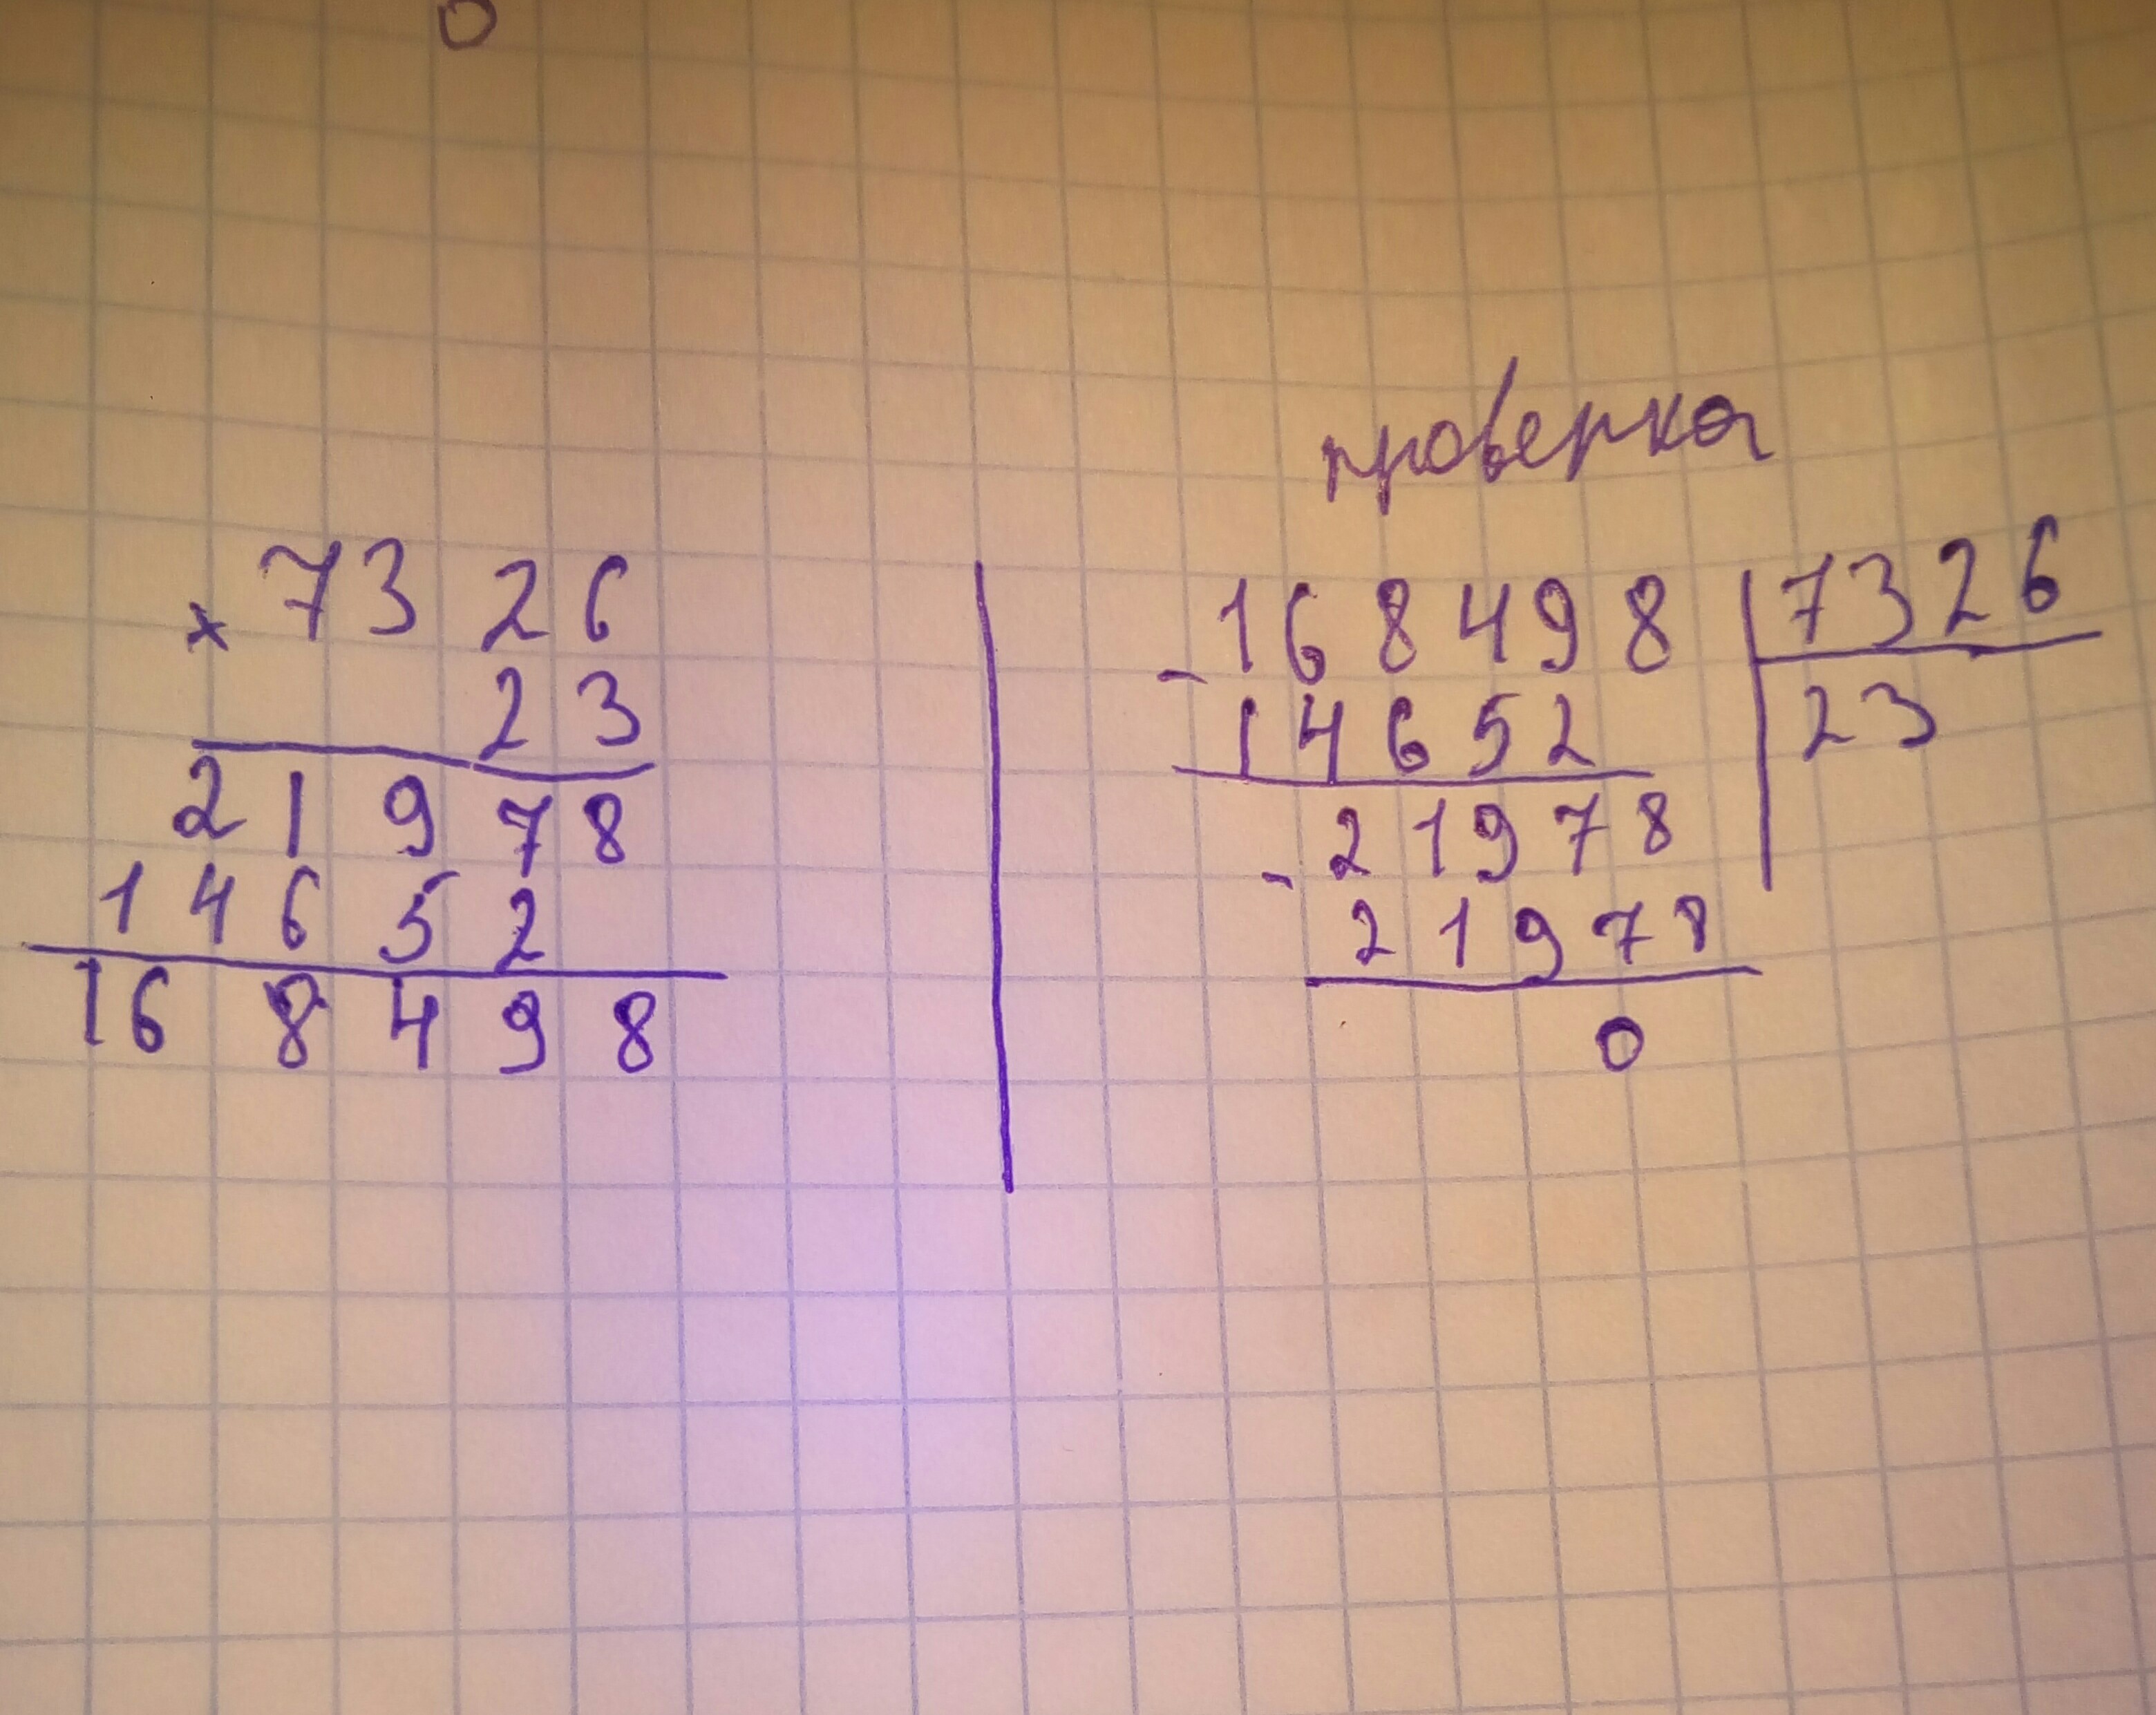 0
× 7326
23
21978
14652
168498
проверка
- 168498 | 7326
14652 | 23
- 21978
21978
0